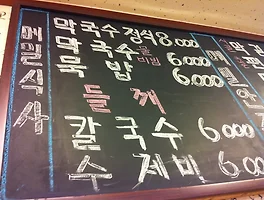 메밀식사
막국수정식 8.000
막국수 물 비빔 6.000
묵밥 6.000
들깨
칼국수 6.000
수제비 6.00